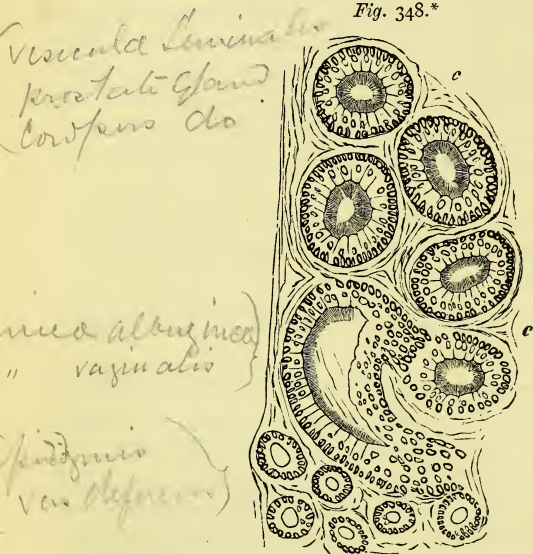 Fig. 348.*
vesicula Seminalis
prostate gland
Cowpers do
c
albuginea
" vaginalis
c
vas deferens